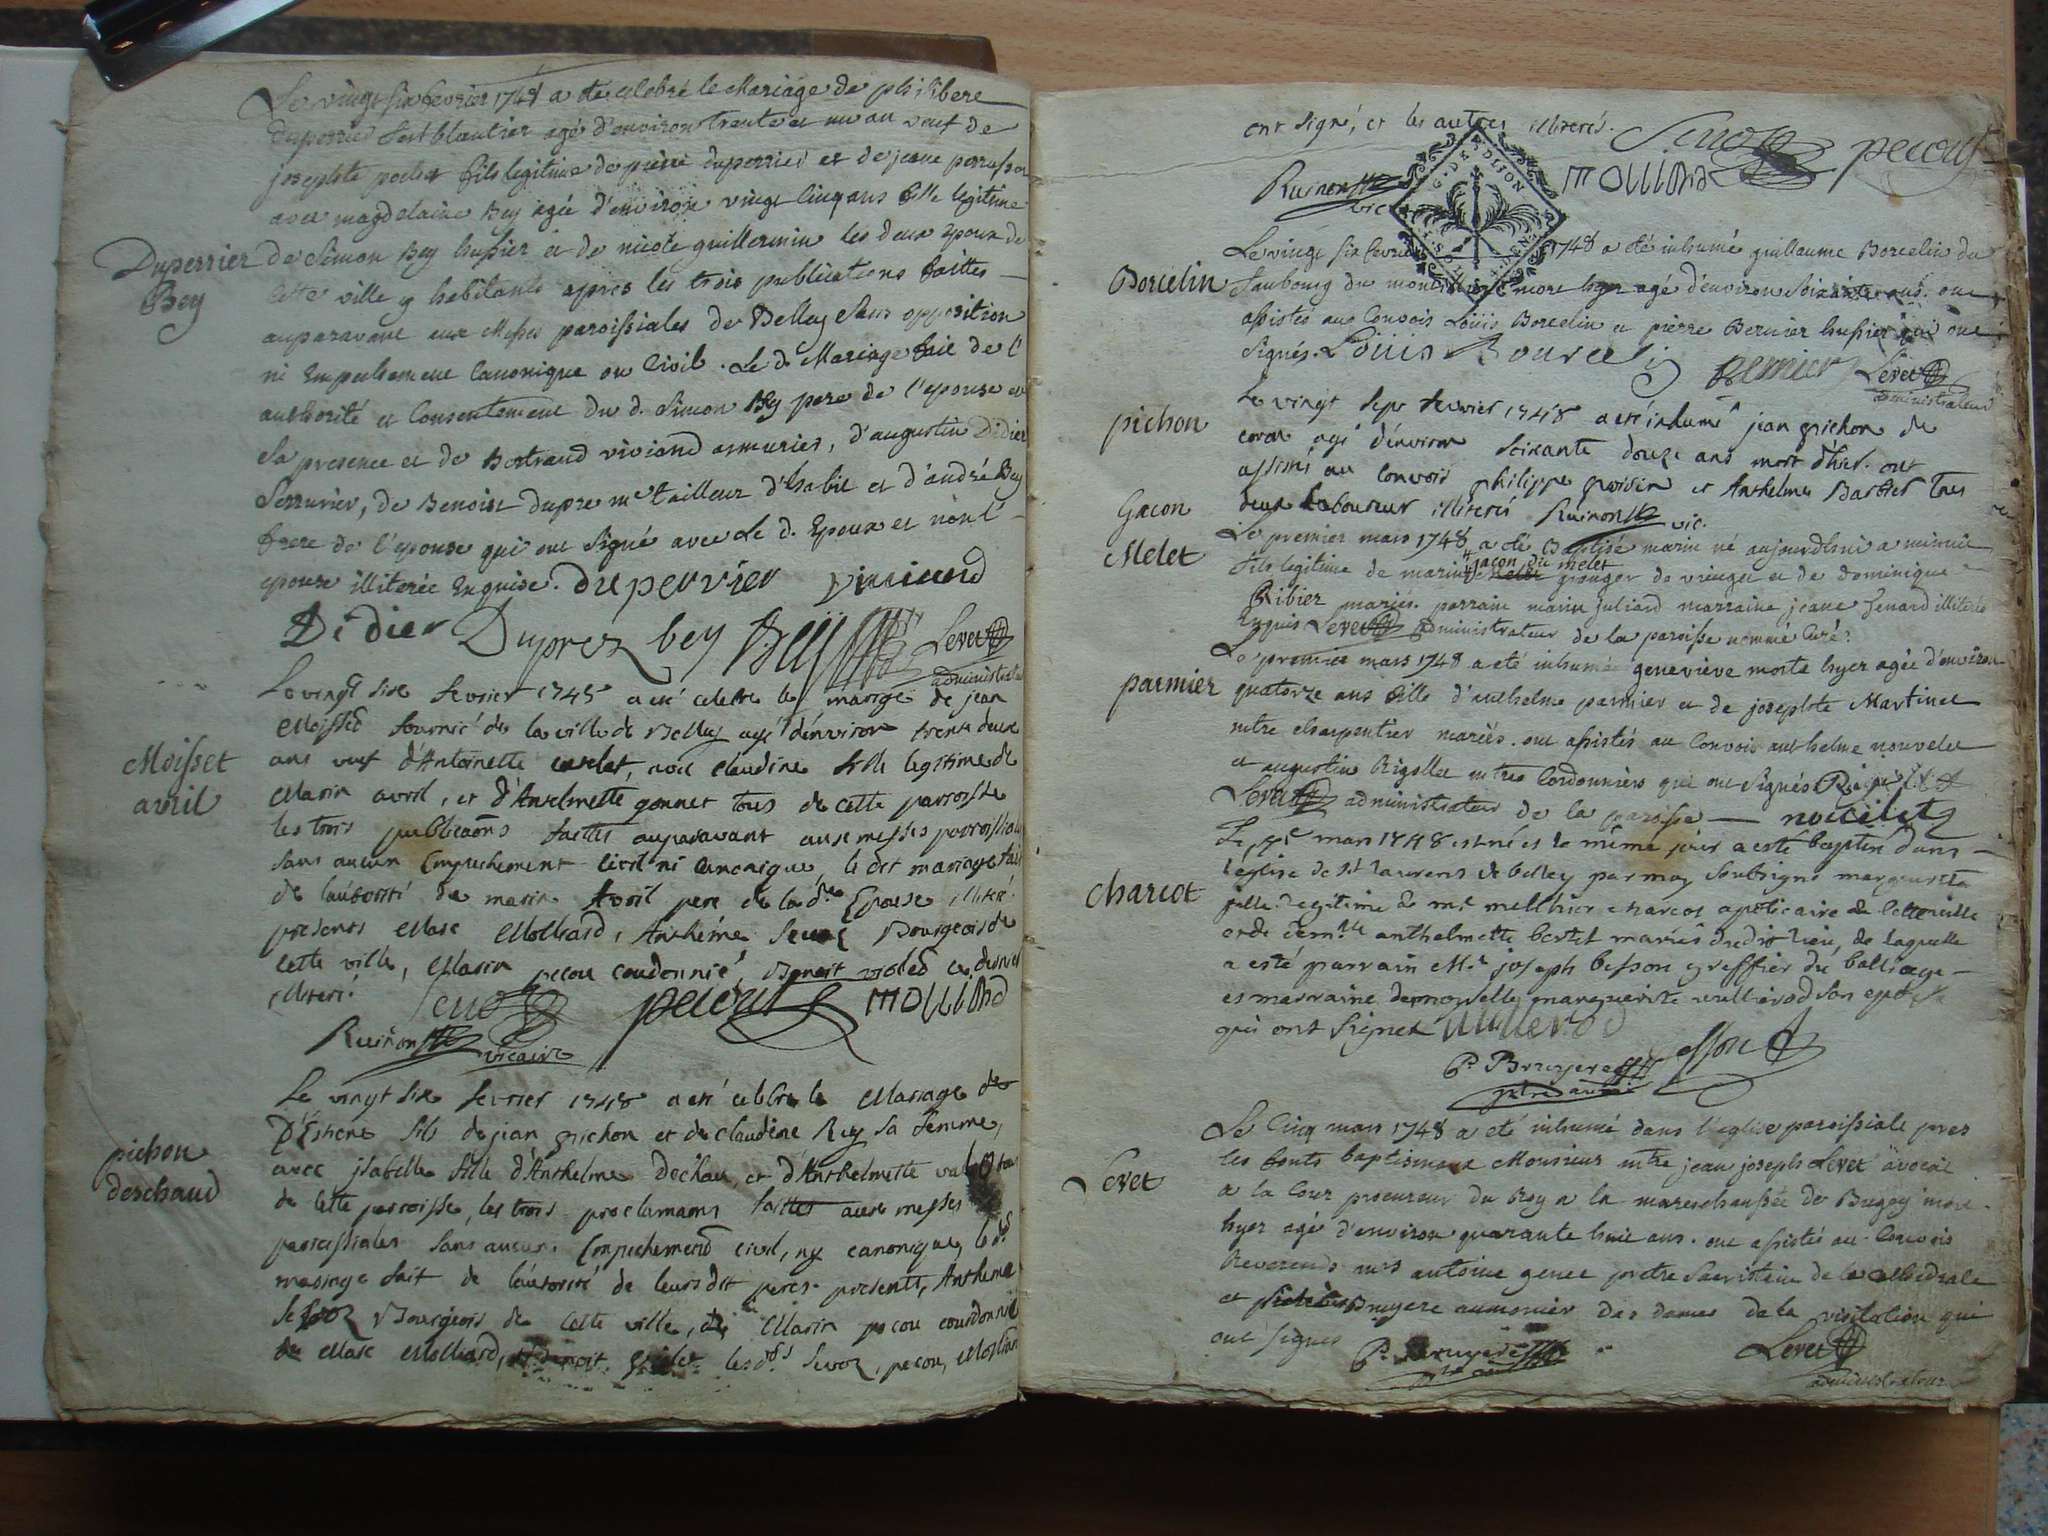 Le vingt six fevrier 1748 a eté celebré le Mariage de philibere
duperrier ferblantier agé d'environ trente et un an veuf de
josephte fils legitime de pierre duperrier et de jeane
avec magdelaine Bey agée d'environ vingt cinq ans fille legitime
Duperrier
Bey
de Simon Bey hussier et de nicole guillermin les deux epoux de
cette ville y habitants apres les trois publications faittes
auparavant aux Messes paroissiales de Belley Sans opposition
ni Empechement Canonique ou Civil. Le d. Mariage fait de l'
authorité et Consentement du d. Simon Bey pere de l'epouse en
Sa presence et de Bertrand viviand armurier, d'augustin Didier
Serrurier, de Benoist dupre me tailleur d'habit et d'andré Bey
frere de l'epouse qui ont Signé avec Le d. Epoux et non l'
epouse illiterée Enquise. duperrier viviand
Didier Duprez bey Bey Levet
administrateur
Moisset
avril
Le vingt six fevrier 1748 a eté celebre le mariage de jean
Moisset de la ville de Belley agé d'environ trente deux
ans veuf d'Antoinette avec claudine fille legitime de
Marin avril, et d'Antelmette gonnet tous de cette parroisse
les trois publicaons faittes auparavant aux messes parroissiales
sans aucun Empechement civil ni canonique, le dit mariage fait
de l'autorité de marin Avril pere de la de Epouse illiteré
presents Marc Molliard, Anthéme Bourgeois de
cette ville, Marin pecou coudonnié, Benoit ce dernier
illiteré.
pecout mollind
Ruinon vicaire
pichon
deschaud
Le vingt six fevrier 1748 a eté celebre le Mariage de
d'Estiene fils de jean pichon et de claudine Rey sa femme,
avec jsabelle fille d'Anthelme Dechau, et d'Anthelmette
de cette parroisse, les trois proclamaons faittes aux messes
paroissiales sans aucun Empechement civil, ny canonique, le d.
mariage fait de l'autorité de leurs dit peres presents, Antheme
Bourgeois de cette ville, Marin pecou courdonnié
Marc Molliard, les d. Sevoz, pecou, Molliard
ont signé, et les autres illiterés.
pecout
mollind
Ruinon
vic
G. DE DIJON
Borcelin
Le vingt six fevrier 1748 a été inhumé guillaume Borcelin du
faubourg du mort hyer agé d'environ Soixante ans. ont
assistés au Convois Loüis Borcelin et pierre Bernier hussier qui ont
Signés. Louis Bourcelin Bernier Levet
administrateur
pichon
Le vingt sept fevrier 1748 a eté inhumé jean pichon de
agé d'environ soixante douze ans mort d'hier. ont
assisté au convois philippe et Anthelme Barbier tous
deux Laboureur illiterés Ruinon vic.
Gacon
Melet
Le premier mars 1748 a été Baptisé marin né aujourdhui a minuit
fils legitime de marin gacon du melet granger de et de dominique
Ribier mariés. parrain marin juliard marraine jeane fenard illiterés
Enquis Levet administrateur de la paroisse nommé Curé.
parmier
Le premier mars 1748 a eté inhumée geneviève morte hyer agée d'environ
quatorze ans fille d'anthelme parmier et de josephte Martinet
mtre charpentier mariés. ont assistés au Convois anthelme nouvelet
et augustin Rigollet mtres Cordonniers qui ont Signés
Levet administrateur de la paroisse
charcot
mars 1748 est né et le même jour a esté baptisé dans
l'eglise de st laurens de belley par moy soubsigné marguerite
fille legitime de mr melthior charcot apoticaire de cette ville
et de demlle anthelmette bertet mariés dudit lieu, de laquelle
a esté parrain Mr joseph besson greffier du balliage
et marraine demoyselle marguerite vullierod son
qui ont Signet vullierod
P. Bruyere Besson
Levet
Le Cinq mars 1748 a eté inhumé dans l'eglise paroissiale pres
les fonts baptismaux Monsieur mtre jean joseph Levet avocat
a la Cour procureur du Roy a la mareschaussée de Bugey mort
hyer agé d'environ quarante huit ans. ont assistés au Convois
Reverends mrs antoine genet pretre Sacristain de la Cathedrale
et Bruyere aumonier des dames de la visitation qui
ont signés P. Bruyere Levet
administrateur